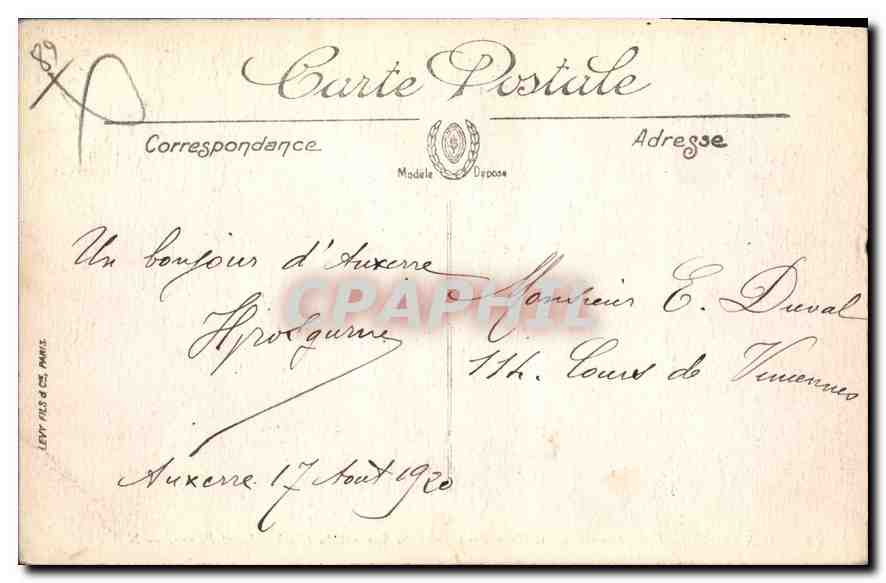 89
Carte Postale
Correspondance
Adresse
Modèle Déposé
Un bonjour d'Auxerre
Auxerre 17 Août 1920
Monsieur E. Duval
114. Cours de Vincennes
LEVY FILS & Cie, PARIS.
CPAPHIL